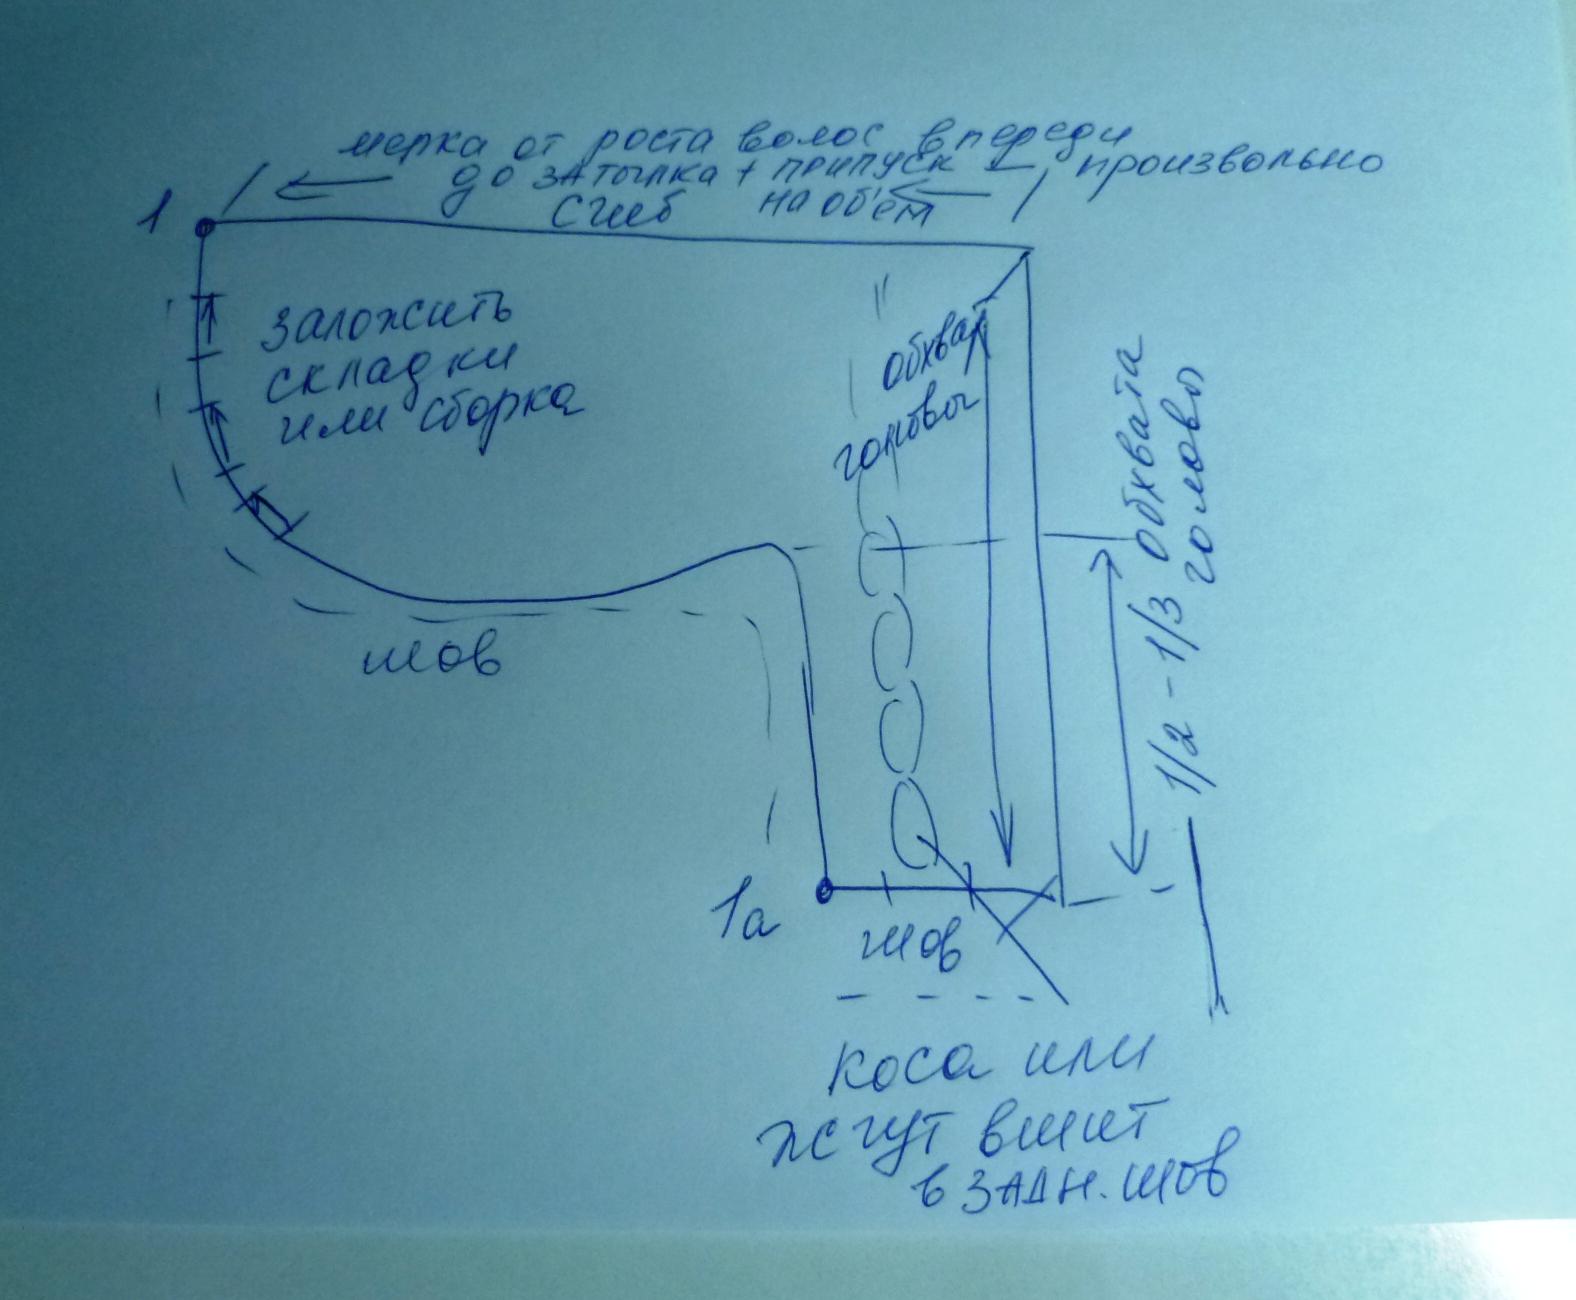 мерка от роста волос впереди
до затылка + припуск
произвольно
на объём
сгиб
1
заложить
складки
или сборка
обхват
головы
1/2 - 1/3 обхвата
головы
шов
1а
шов
коса или
жгут вшит
в задн. шов